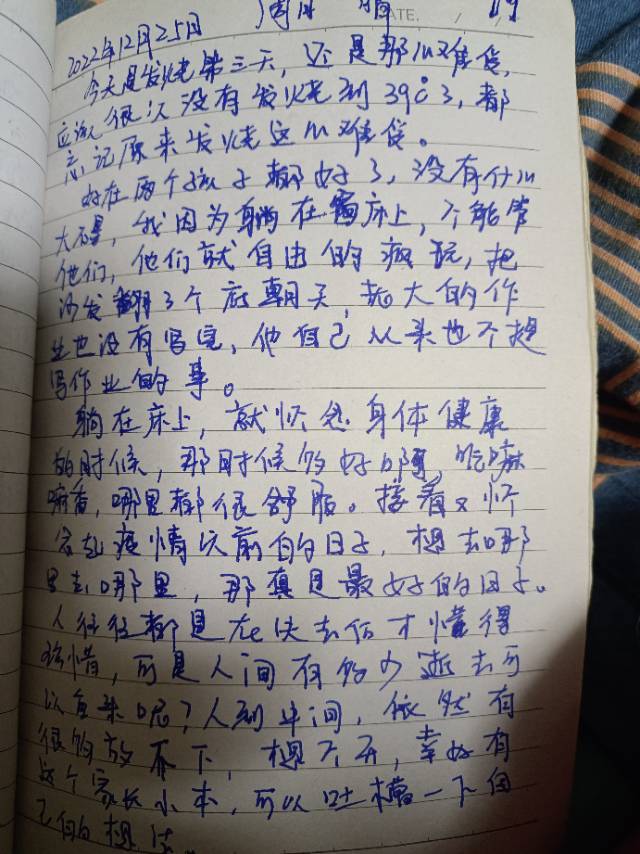 DATE.
2022年12月25日
今天是发烧第三天，还是那么难受，
应该很久没有发烧到39℃3，都
忘记原来发烧这么难受。
好在两个孩子都好了，没有什么
大碍，我因为躺在床上，不能管
他们，他们就自由的疯玩，把
沙发翻了个底朝天，老大的作
业也没有写完，他自己从来也不提
写作业的事。
躺在床上，就怀念身体健康
的时候，那时候多好啊，吃嘛
嘛香，哪里都很舒服。接着又怀
念起疫情以前的日子，想去哪
里去哪里，那真是最好的日子。
人往往都是在失去后才懂得
珍惜，可是人间有多少逝去可
以重来呢？人到中间，依然有
很多放不下，想不开，幸好有
这个家长小本，可以吐槽一下自
己的想法